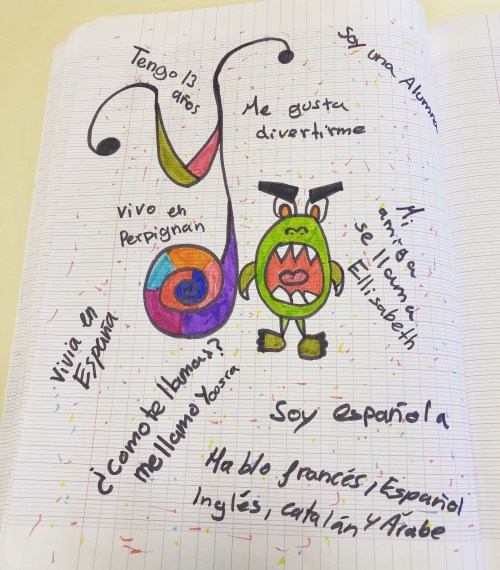 Tengo 13
años
Soy una Alumna
Me gusta
divertirme
vivo en
Perpignan
Mi
amiga
se llama
Ellisabeth
vivia en
España
¿como te llamas?
me llamo Yoosra
Soy española
Hablo francés, Español
Inglés, catalán Y Árabe